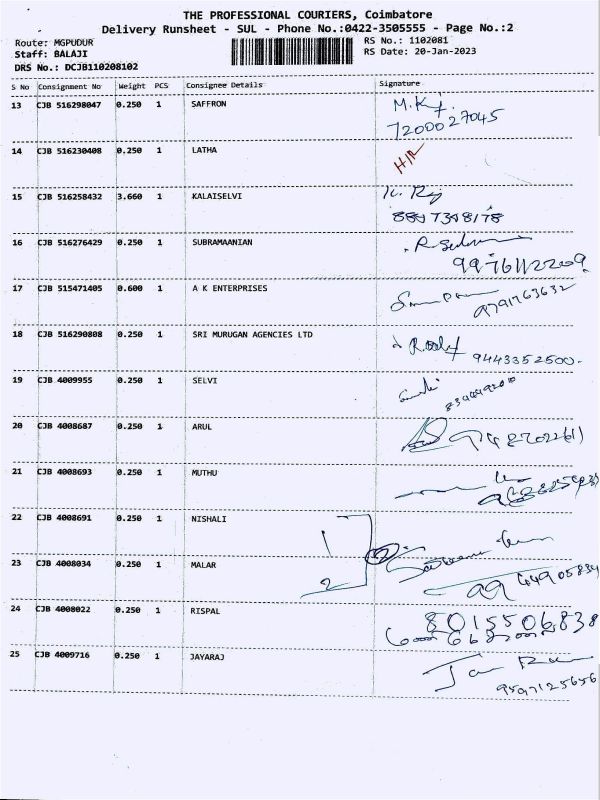 THE PROFESSIONAL COURIERS, Coimbatore
Delivery Runsheet - SUL - Phone No.:0422-3505555 - Page No.:2
Route: MGPUDUR
RS No.: 1102081
Staff: BALAJI
RS Date: 20-Jan-2023
DRS No.: DCJB110208102
S No Consignment No Weight PCS Consignee Details Signature
13 CJB 516298047 0.250 1 SAFFRON
7200027045
14 CJB 516230408 0.250 1 LATHA
15 CJB 516258432 3.660 1 KALAISELVI
16 CJB 516276429 0.250 1 SUBRAMAANIAN
17 CJB 515471405 0.600 1 A K ENTERPRISES
9791763632
18 CJB 516290808 0.250 1 SRI MURUGAN AGENCIES LTD
9443352500
19 CJB 4009955 0.250 1 SELVI
20 CJB 4008687 0.250 1 ARUL
21 CJB 4008693 0.250 1 MUTHU
22 CJB 4008691 0.250 1 NISHALI
1
2
23 CJB 4008034 0.250 1 MALAR
2
24 CJB 4008022 0.250 1 RISPAL
8015506838
25 CJB 4009716 0.250 1 JAYARAJ
9597125656